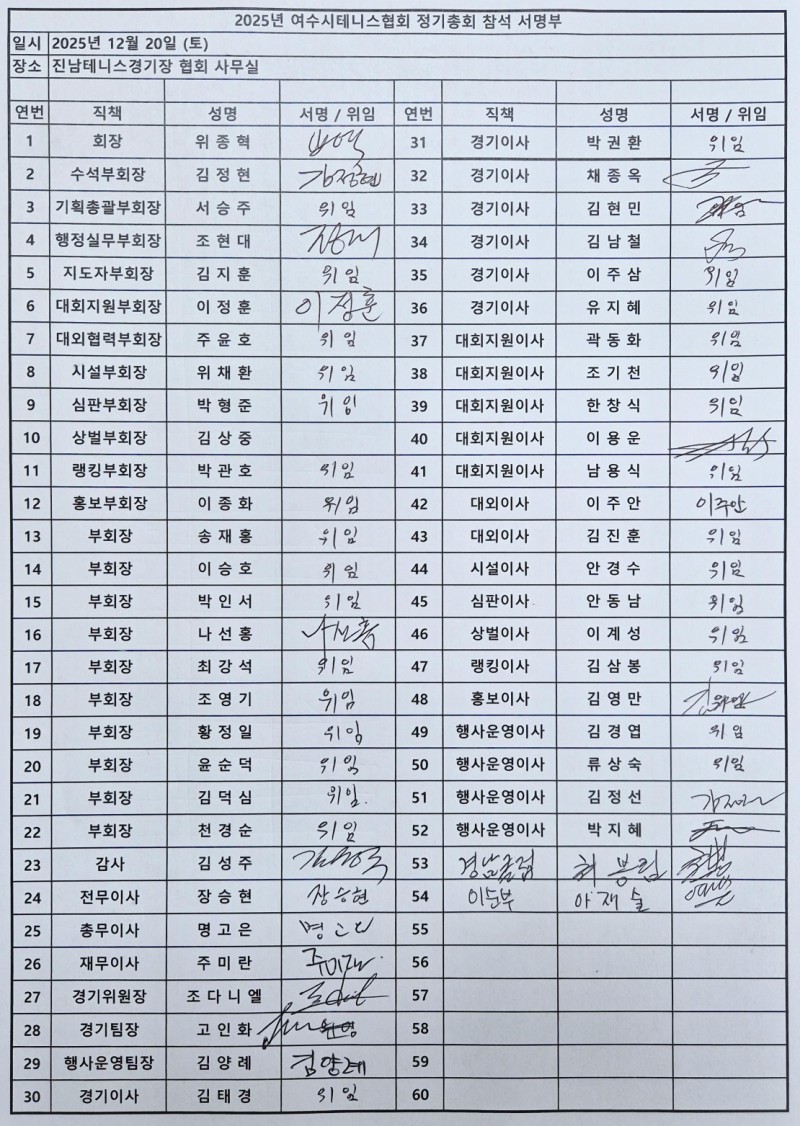 2025년 여수시테니스협회 정기총회 참석 서명부
일시 2025년 12월 20일 (토)
장소 진남테니스경기장 협회 사무실
연번 직책 성명 서명 / 위임 연번 직책 성명 서명 / 위임
1 회장 위종혁 31 경기이사 박권환 위임
2 수석부회장 김정현 김정현 32 경기이사 채종옥
3 기획총괄부회장 서승주 위임 33 경기이사 김현민
4 행정실무부회장 조현대 34 경기이사 김남철
5 지도자부회장 김지훈 위임 35 경기이사 이주삼 위임
6 대회지원부회장 이정훈 이정훈 36 경기이사 유지혜 위임
7 대외협력부회장 주윤호 위임 37 대회지원이사 곽동화 위임
8 시설부회장 위채환 위임 38 대회지원이사 조기천 위임
9 심판부회장 박형준 위임 39 대회지원이사 한창식 위임
10 상벌부회장 김상중 40 대회지원이사 이용운
11 랭킹부회장 박관호 위임 41 대회지원이사 남용식 위임
12 홍보부회장 이종화 위임 42 대외이사 이주안 이주안
13 부회장 송재홍 위임 43 대외이사 김진훈 위임
14 부회장 이승호 위임 44 시설이사 안경수 위임
15 부회장 박인서 위임 45 심판이사 안동남 위임
16 부회장 나선홍 나선홍 46 상벌이사 이계성 위임
17 부회장 최강석 위임 47 랭킹이사 김삼봉 위임
18 부회장 조영기 위임 48 홍보이사 김영만
19 부회장 황정일 위임 49 행사운영이사 김경엽 위임
20 부회장 윤순덕 위임 50 행사운영이사 류상숙 위임
21 부회장 김덕심 위임. 51 행사운영이사 김정선
22 부회장 천경순 위임 52 행사운영이사 박지혜
23 감사 김성주 53
24 전무이사 장승현 장승현 54
25 총무이사 명고은 55
26 재무이사 주미란 주미란 56
27 경기위원장 조다니엘 57
28 경기팀장 고인화 58
29 행사운영팀장 김양례 김양례 59
30 경기이사 김태경 위임 60